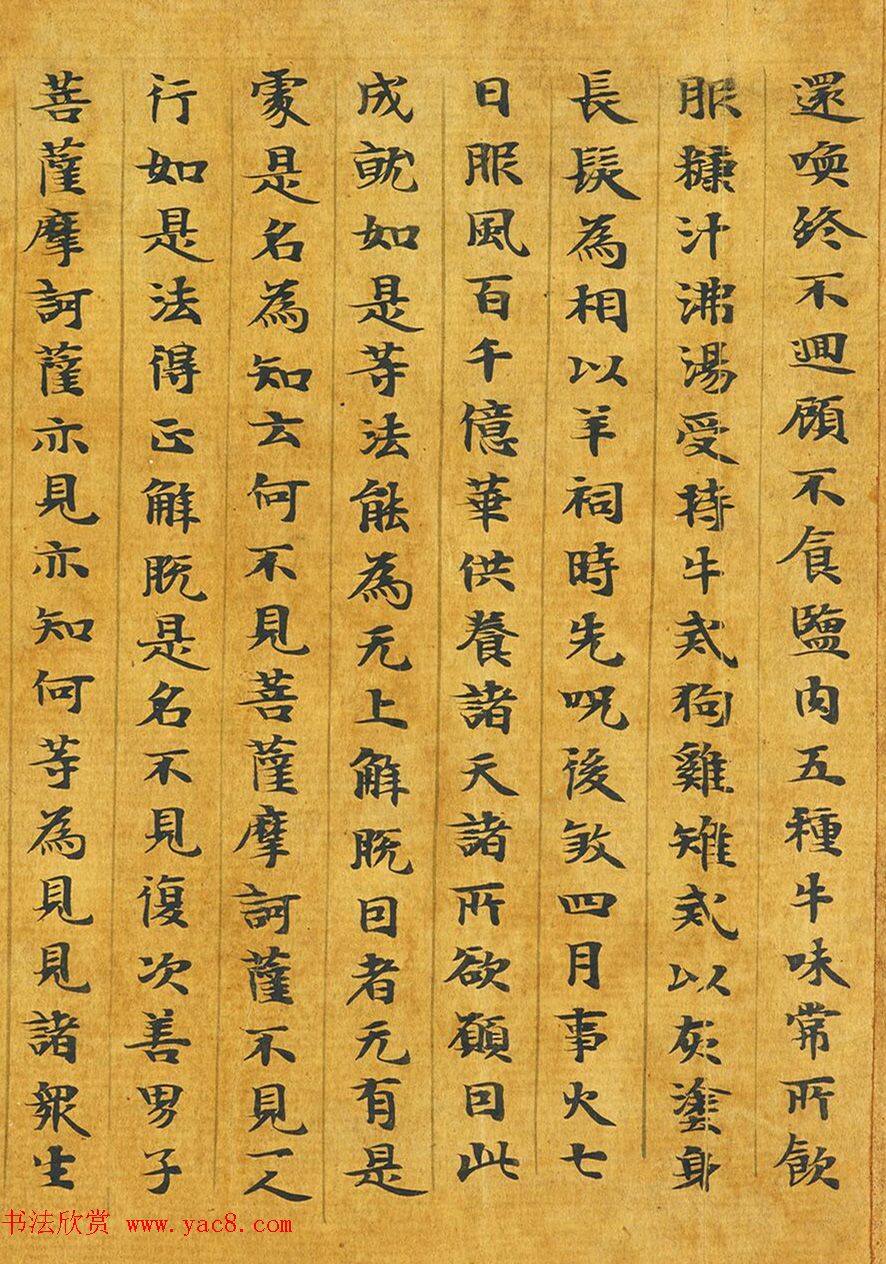 還喚終不迴顧不食鹽肉五種牛味常所飲
服糠汁沸湯受持牛戒狗雞雉戒以灰塗身
長髮為相以羊祠時先呪後煞四月事火七
日服風百千億華供養諸天諸所欲願因此
成就如是等法能為无上解脫因者无有是
處是名為知云何不見菩薩摩訶薩不見一人
行如是法得正解脫是名不見復次善男子
菩薩摩訶薩亦見亦知何等為見見諸衆生
书法欣赏 www.yac8.com